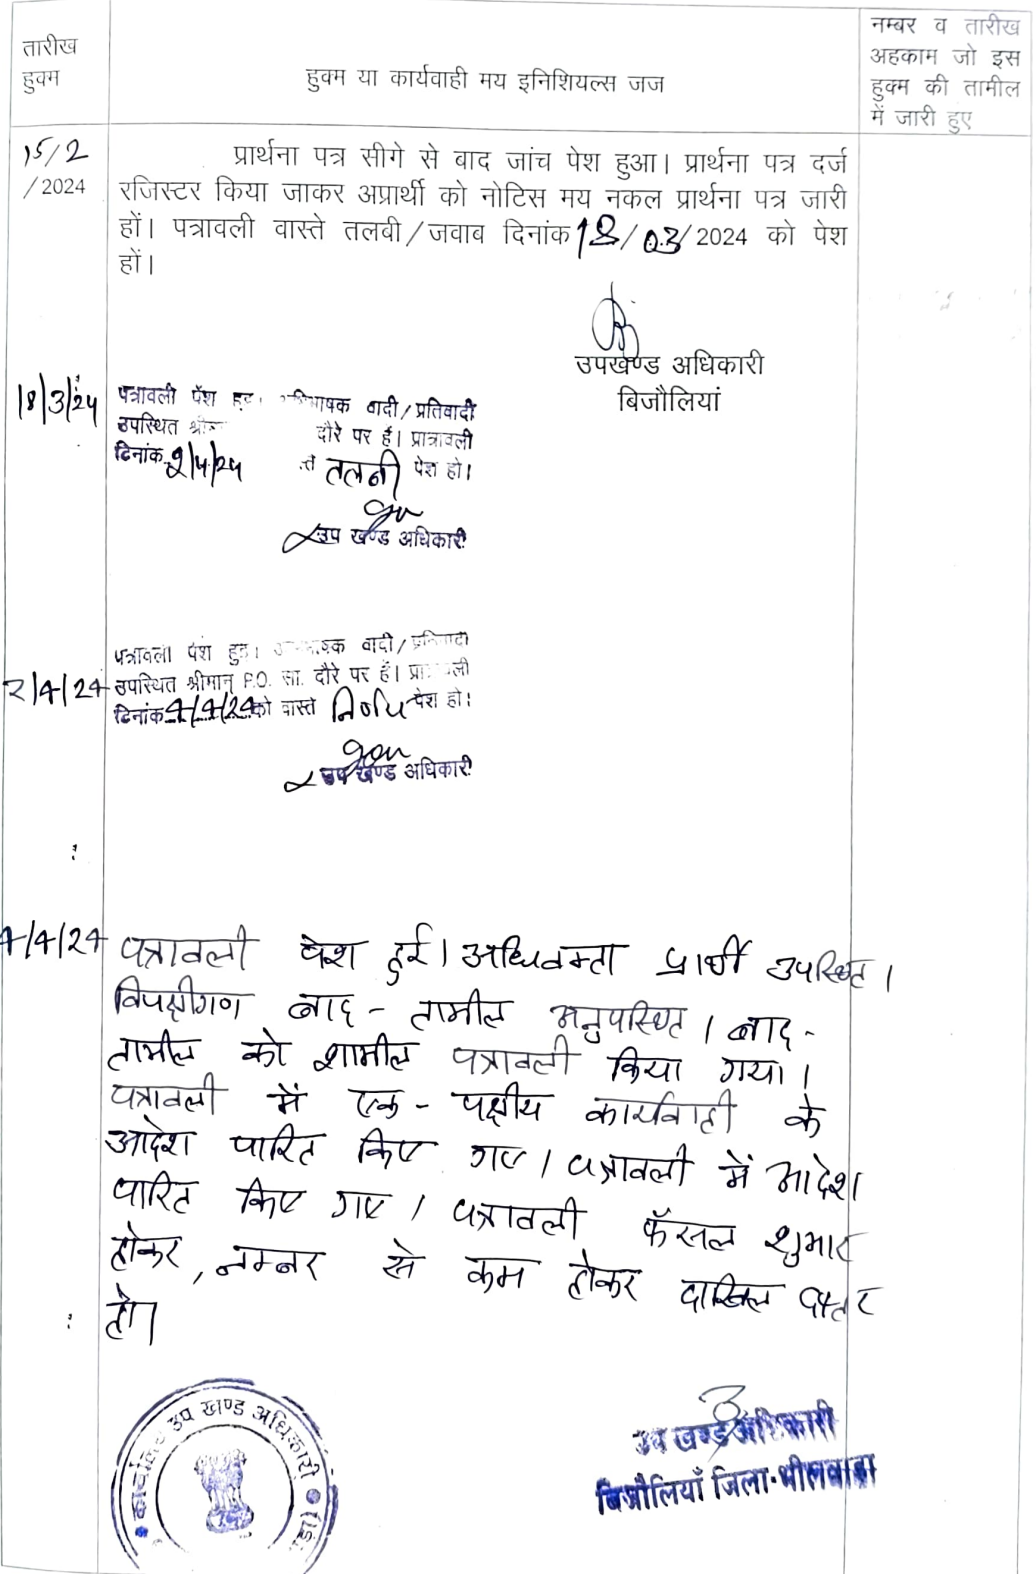 तारीख
हुक्म
हुक्म या कार्यवाही मय इनिशियल्स जज
नम्बर व तारीख
अहकाम जो इस
हुक्म की तामील
में जारी हुए
15/2
/2024
प्रार्थना पत्र सीगे से बाद जांच पेश हुआ। प्रार्थना पत्र दर्ज
रजिस्टर किया जाकर अप्रार्थी को नोटिस मय नकल प्रार्थना पत्र जारी
हों। पत्रावली वास्ते तलबी/जवाब दिनांक 18/03/2024 को पेश
हों।
उपखण्ड अधिकारी
बिजौलियां
18/3/24
पत्रावली पेश वादी/प्रतिवादी
उपस्थित दौरे पर हैं। प्रात्रावली
दिनांक 2/4/24 तलबी पेश हो।
उप खण्ड अधिकारी
2/4/24
पत्रावली पेश वादी/
उपस्थित श्रीमान् P.O. सा. दौरे पर हैं।
दिनांक 4/4/24 को वास्ते निर्णय पेश हो।
उप खण्ड अधिकारी
4/4/24
पत्रावली पेश हुई। अधिवक्ता प्रार्थी उपस्थित।
विपक्षीगण बाद - तामील अनुपस्थित। बाद -
तामील को शामील पत्रावली किया गया।
पत्रावली में एक - पक्षीय कार्यवाही के
आदेश पारित किए गए। पत्रावली में आदेश
पारित किए गए। पत्रावली फैसल शुमार
होकर, नम्बर से कम होकर दाखिल दफ्तर
हो।
कार्यालय उप खण्ड अधिकारी
उप खण्ड अधिकारी
बिजौलियाँ जिला-भीलवाड़ा